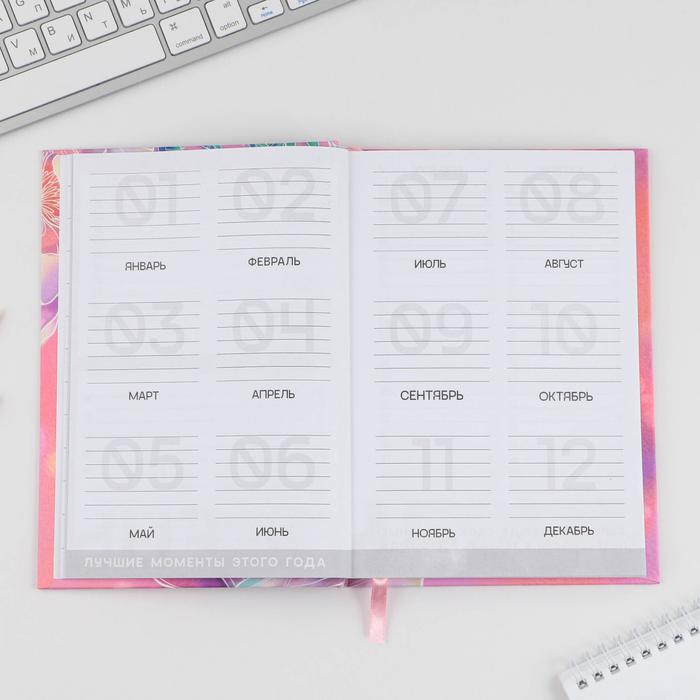 Ч С М И Т Ь
⌘ command
alt option
01 02
ЯНВАРЬ ФЕВРАЛЬ
03 04
МАРТ АПРЕЛЬ
05 06
МАЙ ИЮНЬ
ЛУЧШИЕ МОМЕНТЫ ЭТОГО ГОДА
07 08
ИЮЛЬ АВГУСТ
09 10
СЕНТЯБРЬ ОКТЯБРЬ
11 12
НОЯБРЬ ДЕКАБРЬ